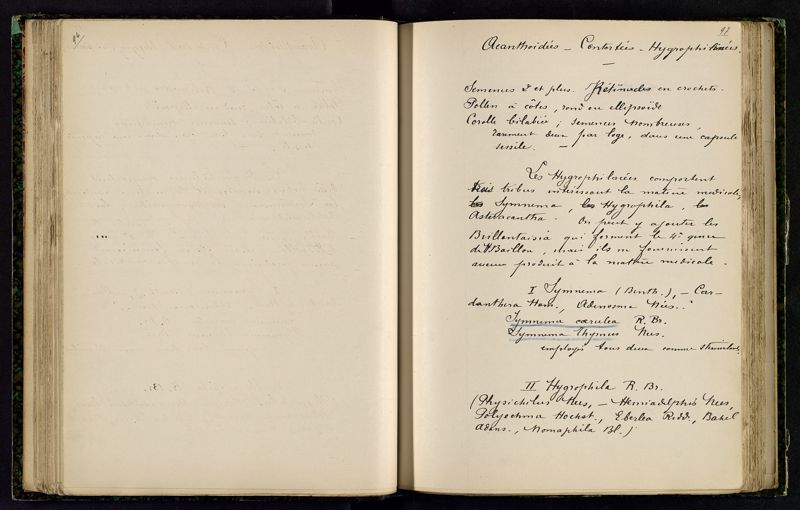 96
97
Acanthoidées – Contortées – Hygrophilacées.
—
Semences 2 et plus. Rétinacles en crochets.
Pollen à côtes, rond ou ellipsoïde
Corolle bilabiée ; semences nombreuses,
rarement deux par loge, dans une capsule
sessile. —
Les Hygrophilacées comportent
trois tribus intéressant la matière médicale,
les Symnema, les Hygrophila, les
Asteracantha. On peut y ajouter les
Brillantaisia qui forment le 4e genre
de Baillon, mais ils ne fournissent
aucun produit à la matière médicale.
I Symnema (Benth.), – Car-
danthera Ham., Adenosma Nées.
Symnema cærulea R. Br.
Symnema thymus Nees.
employés tous deux comme stimulants.
II Hygrophila R. Br.
(Physichilus Nees, – Hemiadelphis Nees,
Polyechma Hochst., Eberlea Ridd., Bahel
Adans., Nomaphila Bl.)